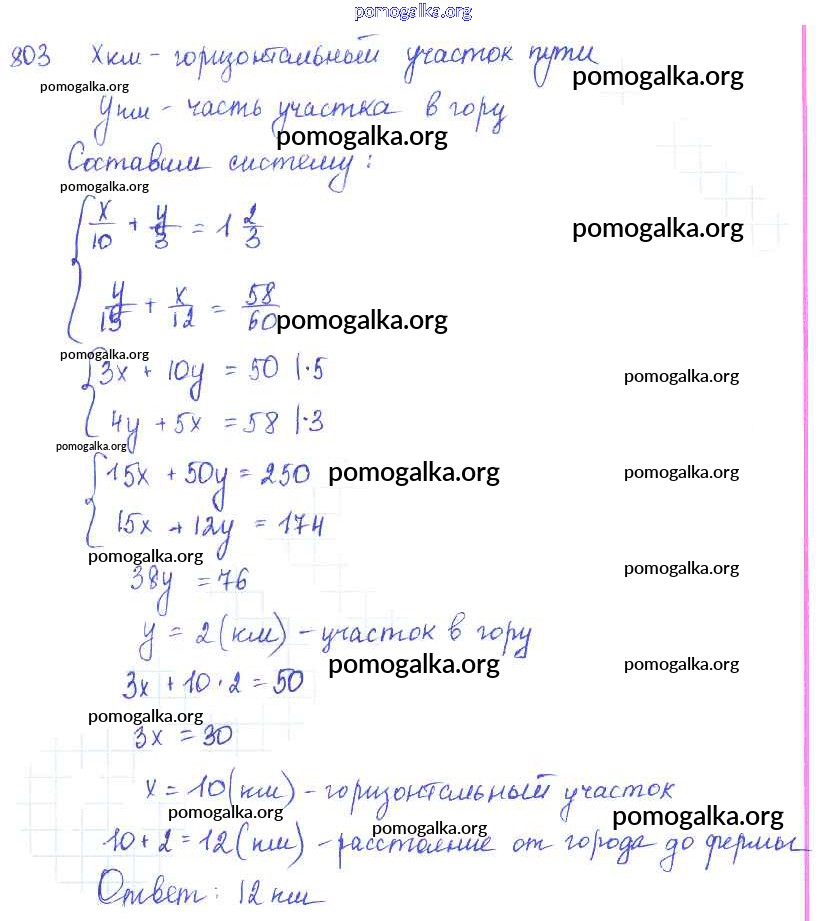 pomogalka.org
803 Xкм - горизонтальный участок пути
pomogalka.org pomogalka.org
Yкм - часть участка в гору
pomogalka.org
Составим систему:
pomogalka.org
x/10 + y/3 = 1 2/3
pomogalka.org
y/15 + x/12 = 58/60
pomogalka.org
pomogalka.org
3x + 10y = 50 |·5
pomogalka.org
4y + 5x = 58 |·3
pomogalka.org
15x + 50y = 250
pomogalka.org pomogalka.org
15x + 12y = 174
pomogalka.org
38y = 76
pomogalka.org
y = 2 (км) - участок в гору
pomogalka.org pomogalka.org
3x + 10·2 = 50
pomogalka.org
3x = 30
x = 10 (км) - горизонтальный участок
pomogalka.org pomogalka.org pomogalka.org
10 + 2 = 12 (км) - расстояние от города до фермы
Ответ: 12 км